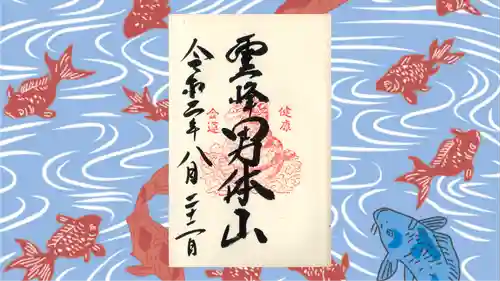 雲峰男体山
健康
金運
令和二年八月二十一日